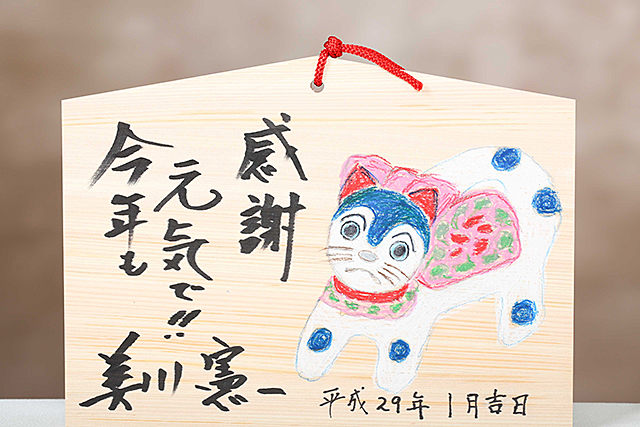 感謝
今年も
元気で!!
美川憲一
平成29年1月吉日